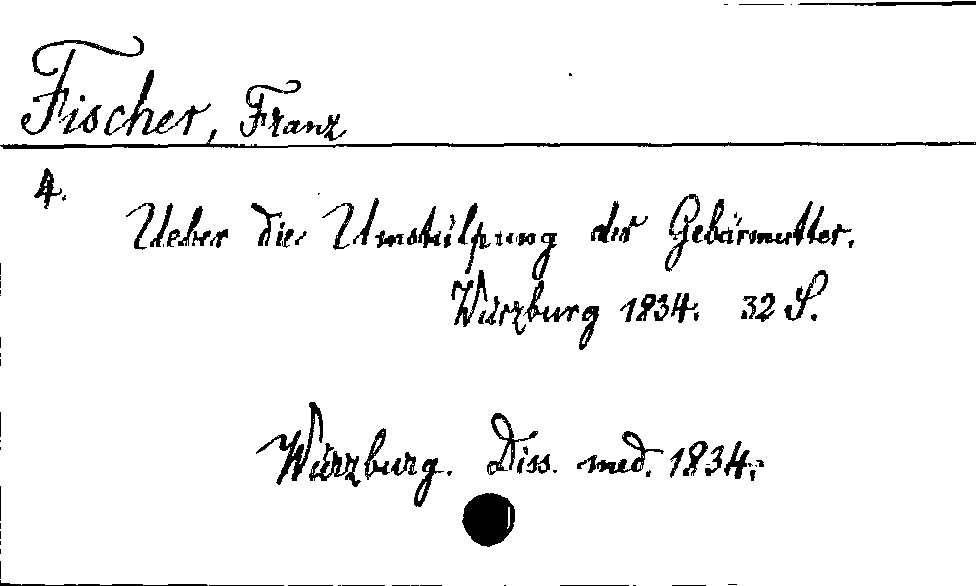 Fischer, Franz
4.
Ueber die Umstülpung der Gebärmutter.
Würzburg 1834. 32 S.
Würzburg. Diss. med. 1834.